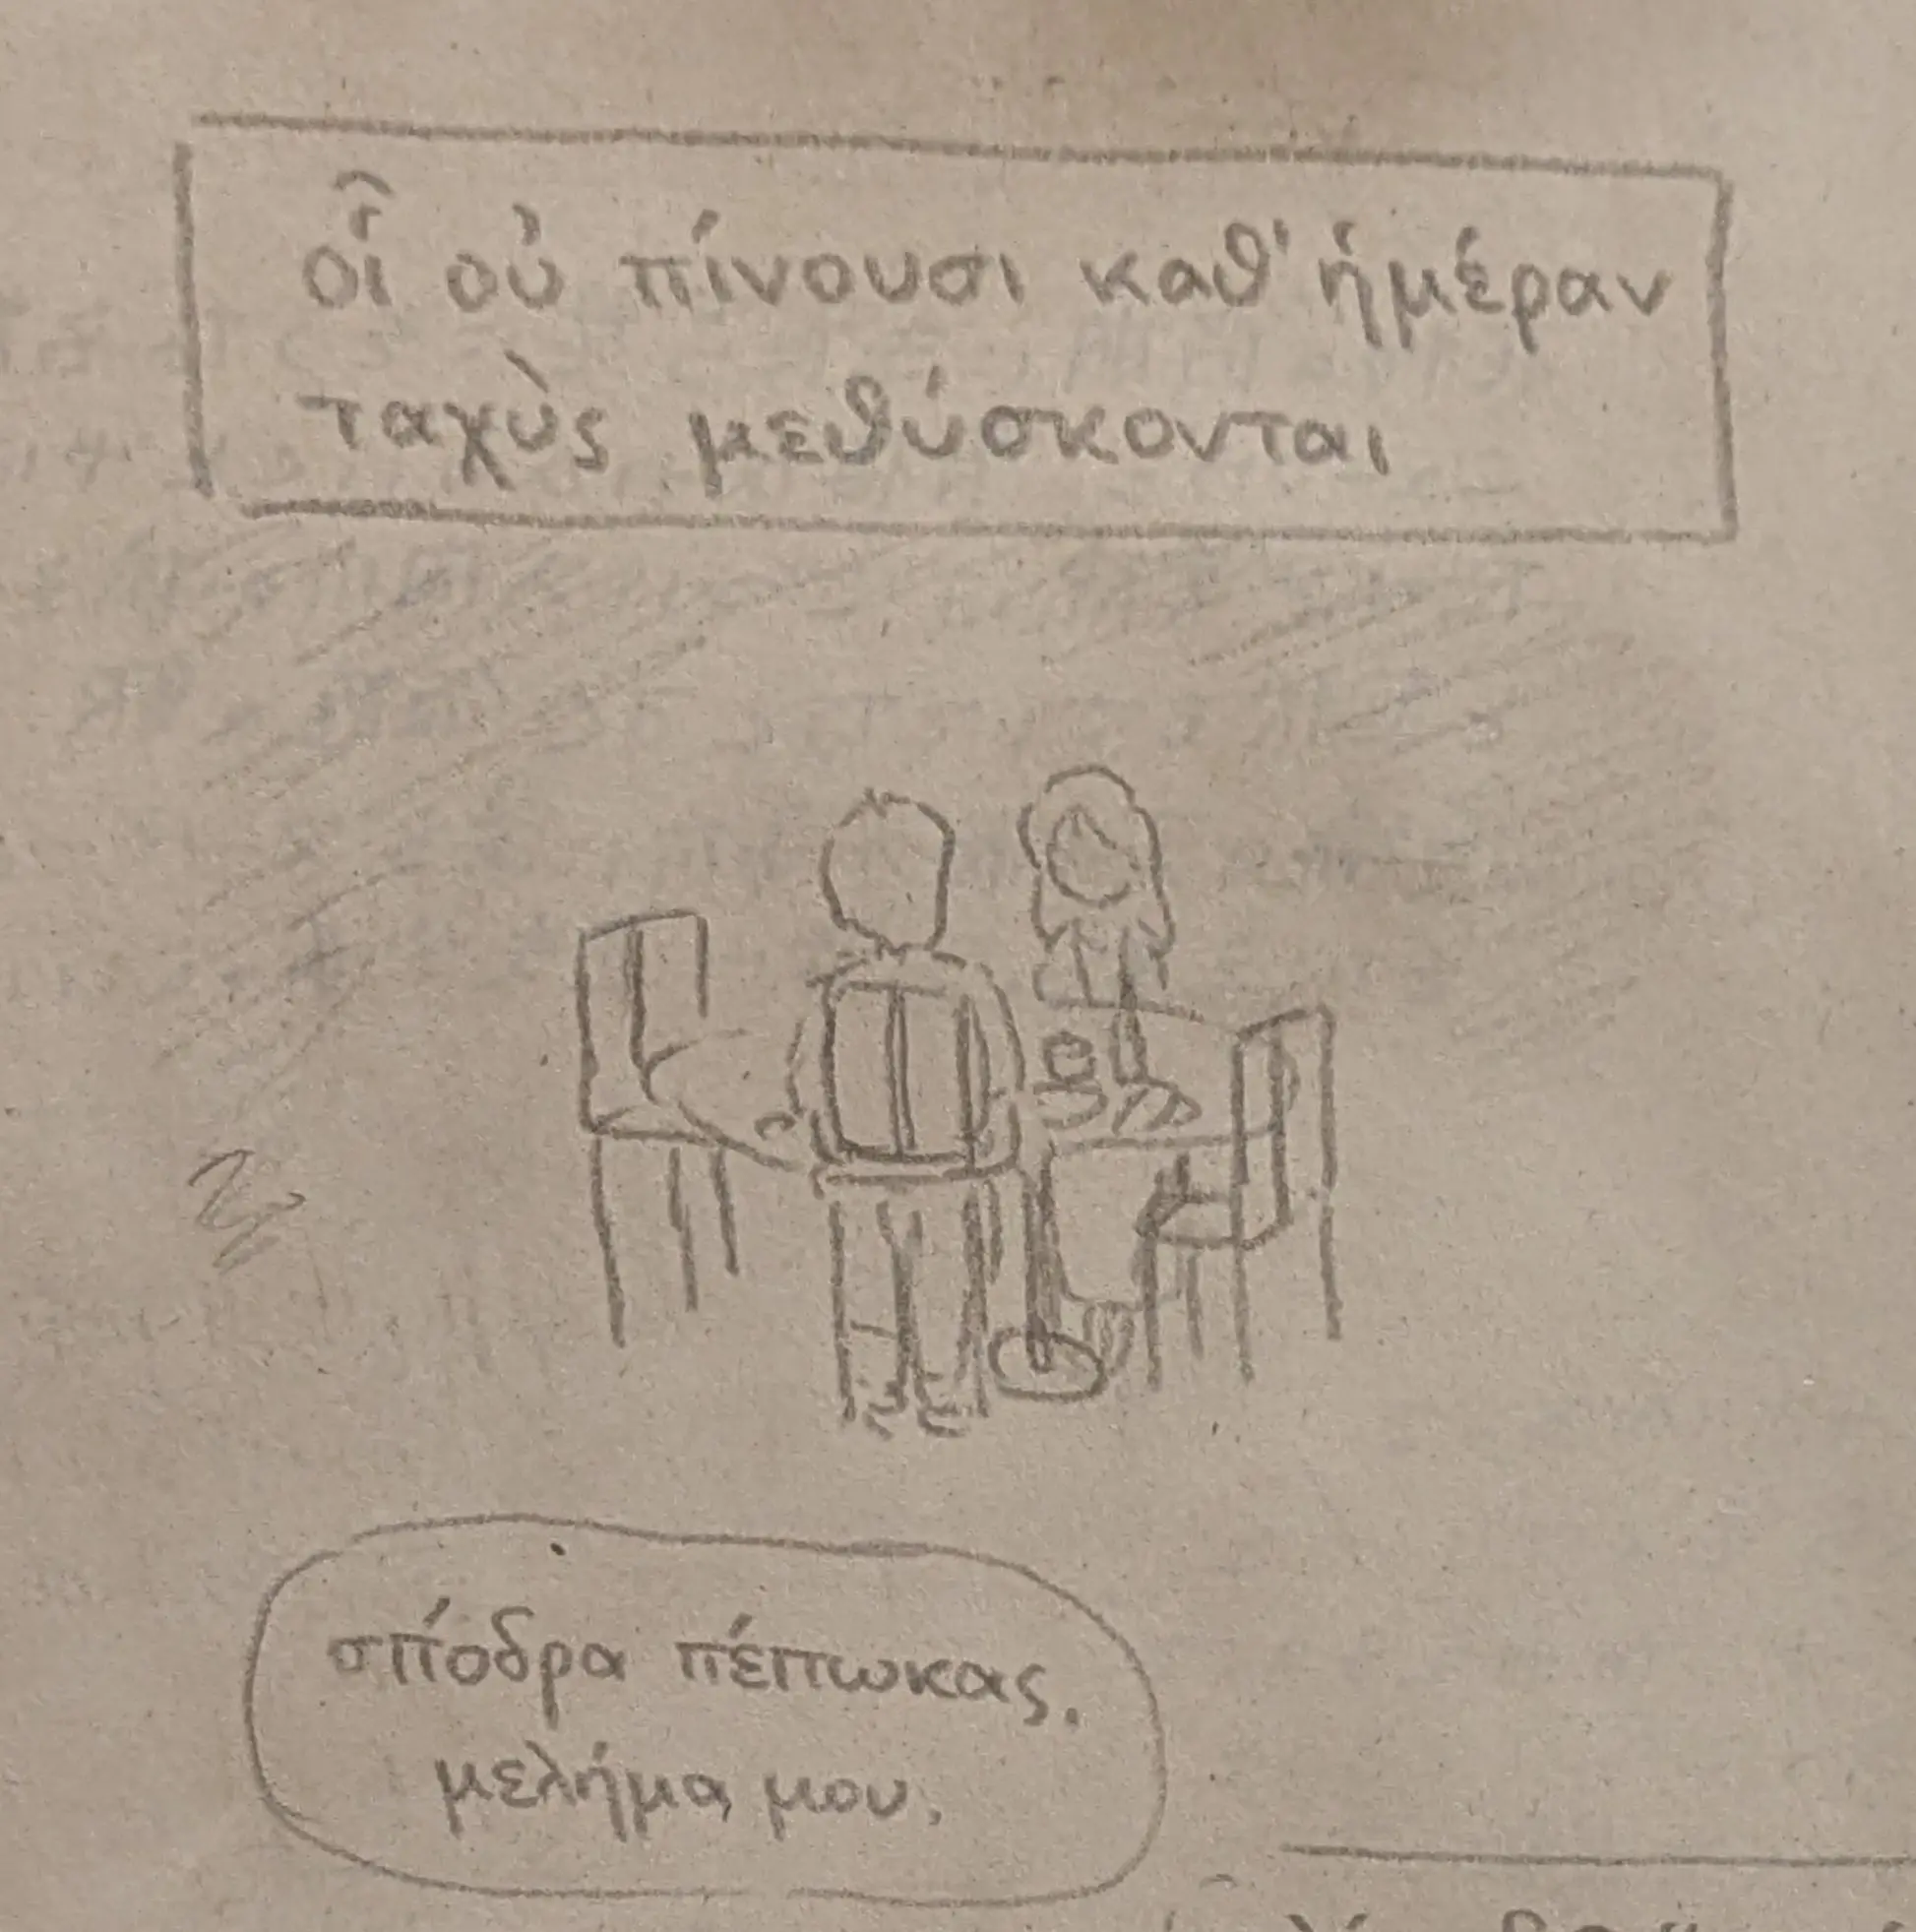 οἳ οὐ πίνουσι καθ' ἡμέραν
ταχὺς μεθύσκονται
σπόδρα πέπωκας.
μελήμα μου.